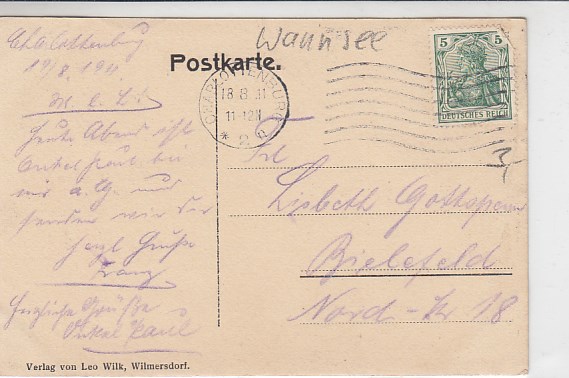 Wannsee
Postkarte.
5 5
DEUTSCHES REICH
CHARLOTTENBURG
18.8.11
11-12N
* 2 n
Charlottenburg
19/8. 1911.
M. l. L.!
Heute Abend ist
Onkel Paul bei
mir a. G. und
senden wir dir
herzl Grüße
Franz
Herzliche Grüße
Onkel Paul
Frl
Lisbeth
Bielefeld
Nord-Str 18
3,
Verlag von Leo Wilk, Wilmersdorf.